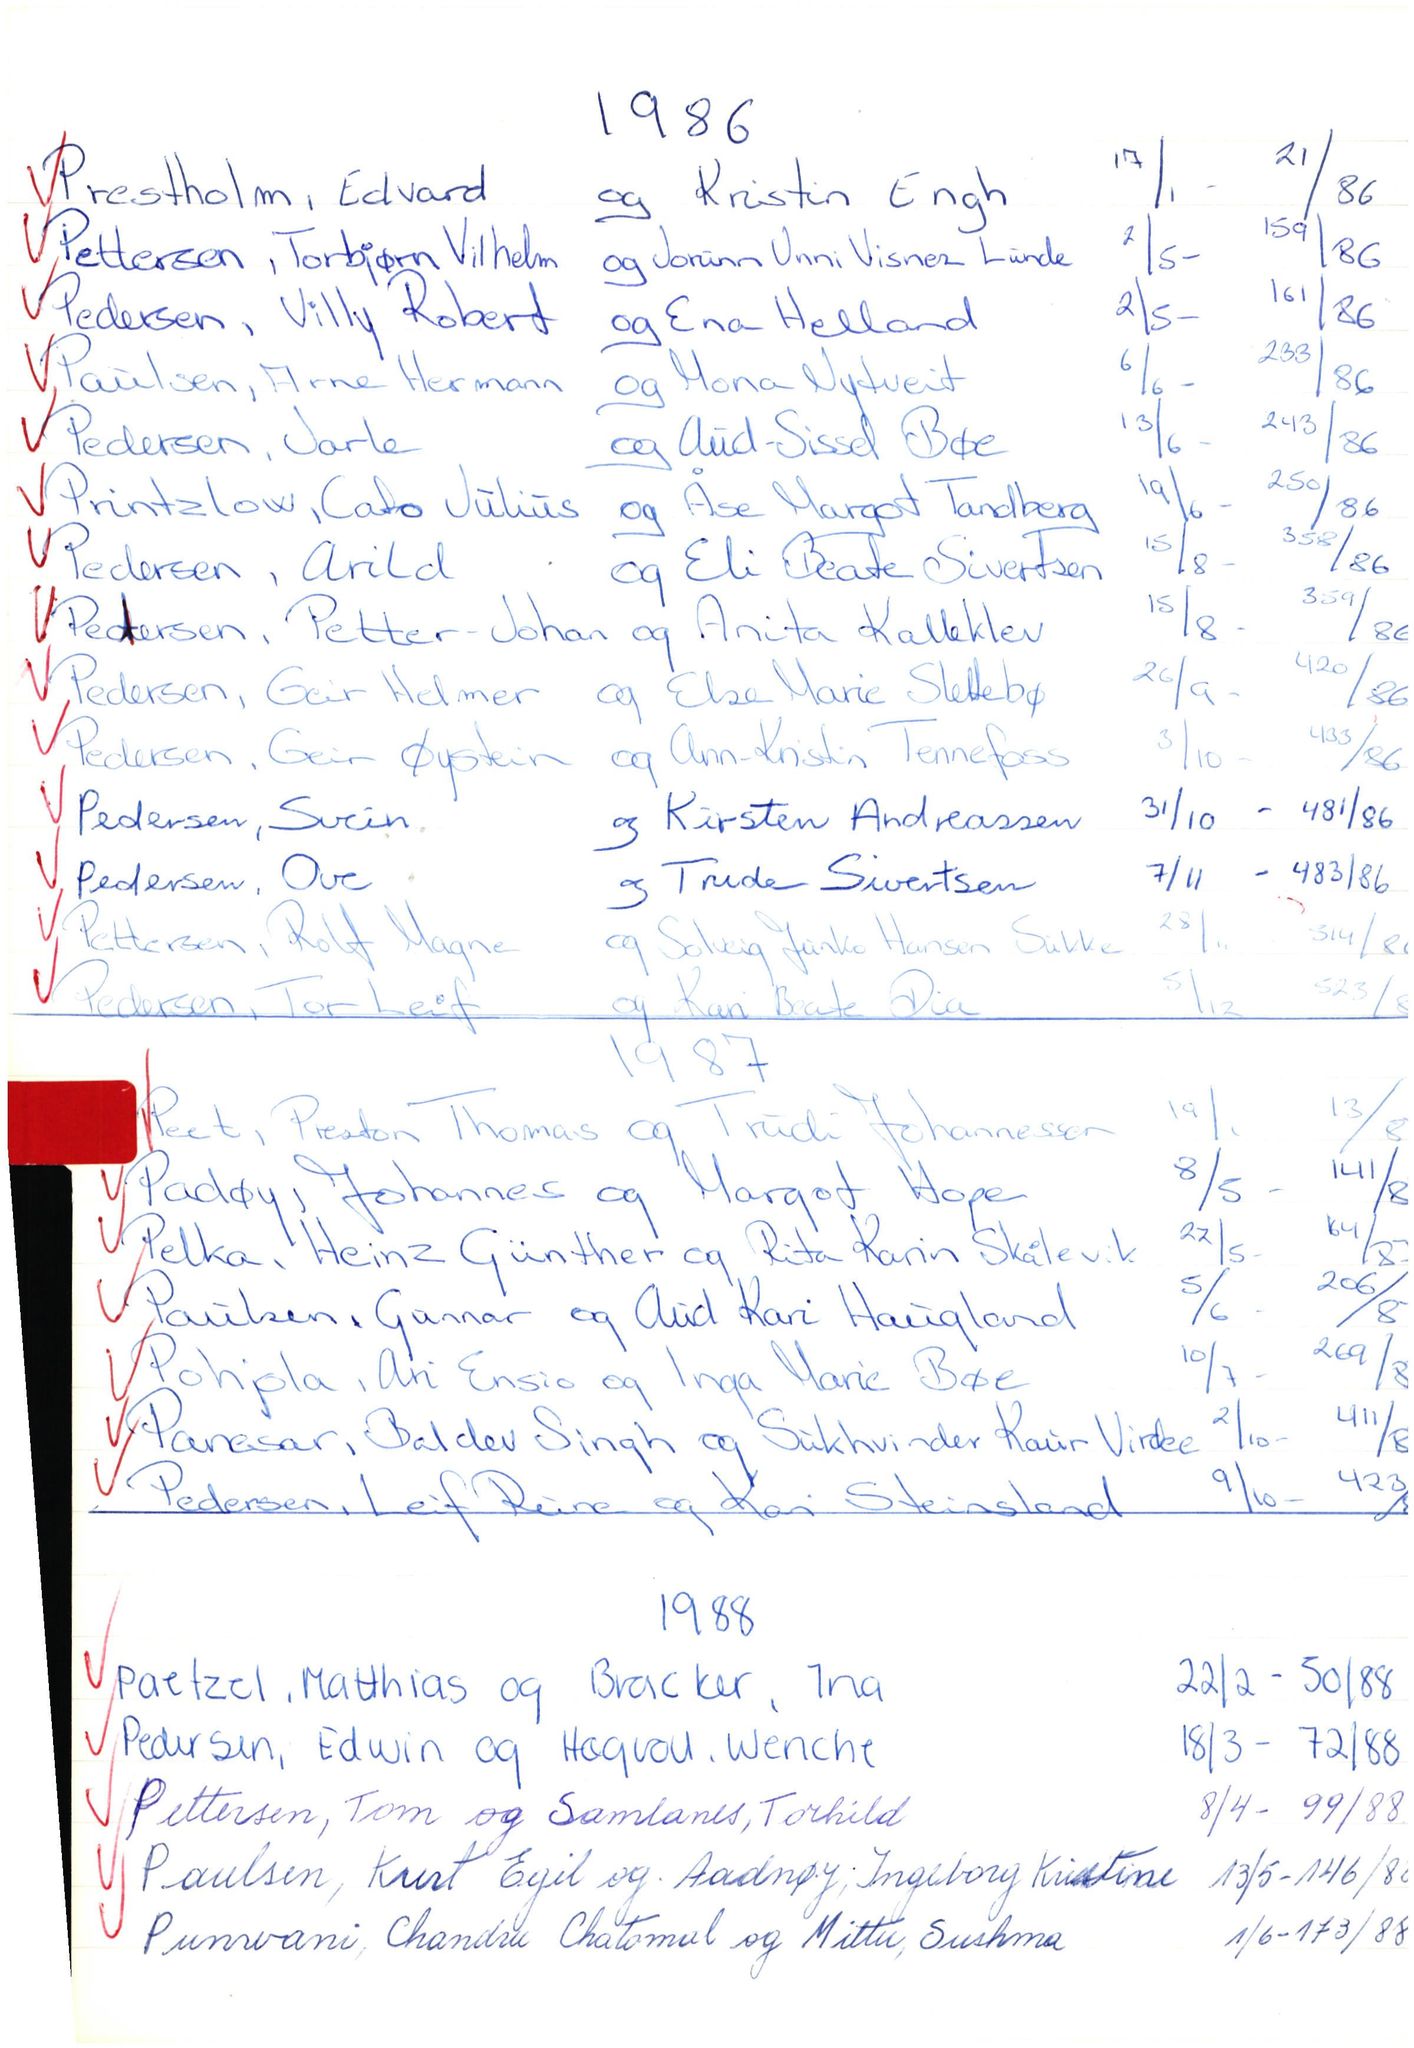 1986
Prestholm, Edvard og Kristin Engh 17/1 - 21/86
Pettersen, Torbjørn Vilhelm og Jorunn Unni Visnes Lunde 2/5 - 159/86
Pedersen, Villy Robert og Ena Helland 2/5 - 161/86
Paulsen, Arne Hermann og Mona Nytveit 6/6 - 233/86
Pedersen, Jarle og Aud-Sissel Bøe 13/6 - 243/86
Printzlow, Cato Julius og Åse Margot Tandberg 19/6 - 250/86
Pedersen, Arild og Eli Beate Sivertsen 15/8 - 358/86
Pedersen, Petter-Johan og Anita Kalleklev 15/8 - 359/86
Pedersen, Geir Helmer og Else Marie Slettebø 26/9 - 420/86
Pedersen, Geir Øystein og Ann-Kristin Tennefoss 3/10 - 433/86
Pedersen, Svein og Kirsten Andreassen 31/10 - 481/86
Pedersen, Ove og Trude Sivertsen 7/11 - 483/86
Pettersen, Rolf Magne og Solveig Hansen 28/11 514/8
Pedersen, Tor Leif og Kari Beate Dia 5/12 523/8
1987
Peet, Preston Thomas og Trudi Johannessen 19/1 13/8
Padøy, Johannes og Margot Hope 8/5 - 141/8
Pelka, Heinz Günther og Rita Karin Skålevik 22/5 - 164/87
Paulsen, Gunnar og Aud Kari Haugland 5/6 - 206/8
Pohjola, Ari Ensio og Inga Marie Bøe 10/7 - 269/8
Panesar, Baldev Singh og Sukhvinder Kaur Virdee 2/10 - 411/8
Pedersen, Leif Rune og Kari Steinsland 9/10 - 423/8
1988
Paetzel, Matthias og Bracker, Ina 22/2 - 50/88
Pedersen, Edwin og Hagvoll, Wenche 18/3 - 72/88
Pettersen, Tom og Samlanes, Torhild 8/4 - 99/88
Paulsen, Kurt Egil og Aadnøy, Ingeborg Kristine 13/5 - 146/88
Punwani, Chandru Chatomal og Mittu, Sushma 1/6 - 173/88